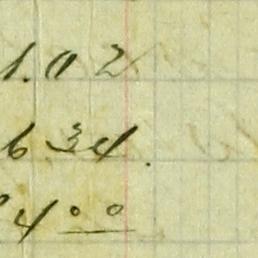 1.02
634.
4⁰⁰